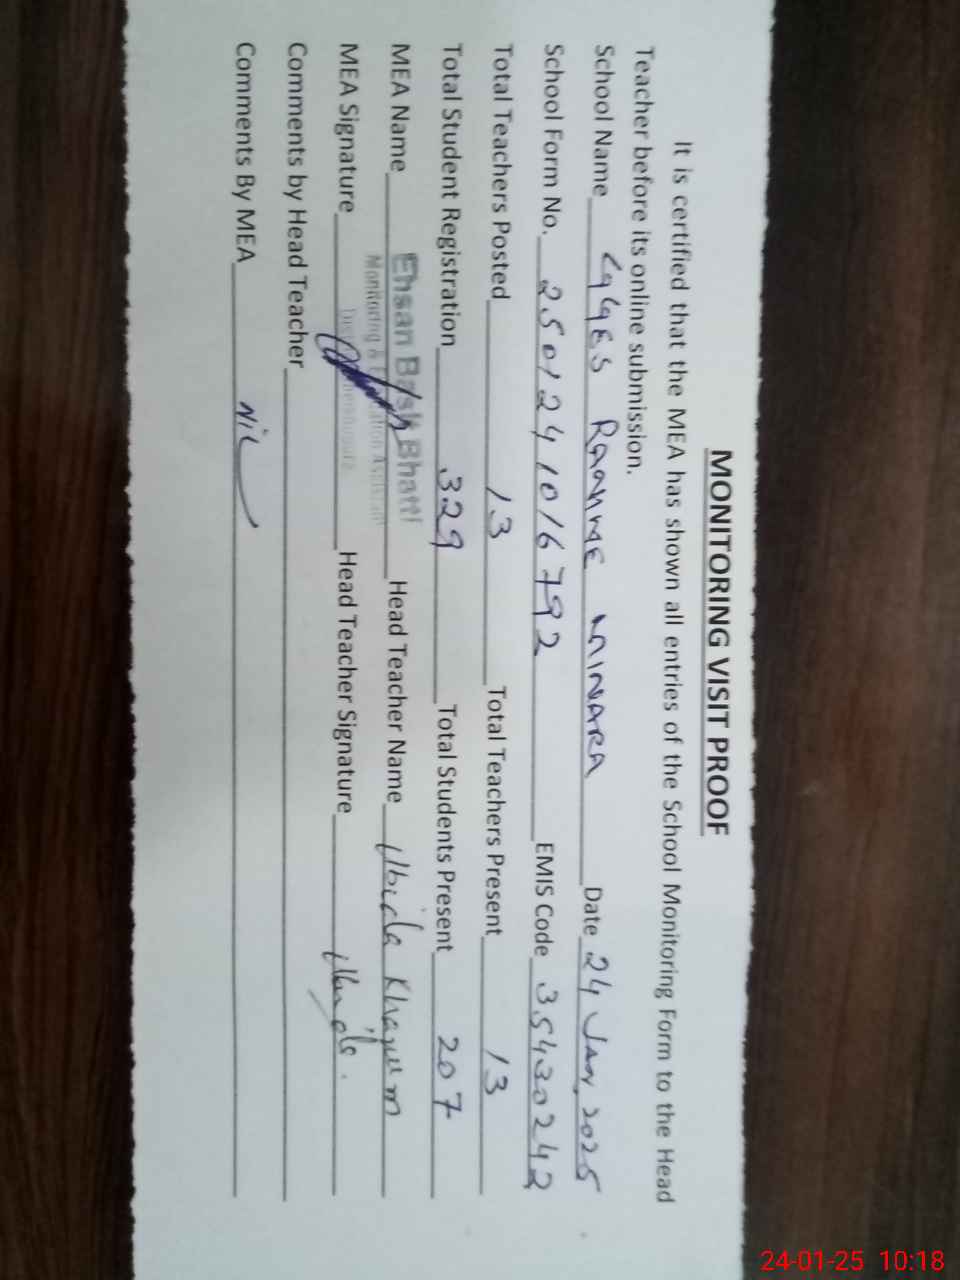 MONITORING VISIT PROOF
It is certified that the MEA has shown all entries of the School Monitoring Form to the Head
Teacher before its online submission.
School Name MINARA Date 24 Jan, 2025
School Form No. 2501241016792 EMIS Code 35430242
Total Teachers Posted 13 Total Teachers Present 13
Total Student Registration 329 Total Students Present 207
MEA Name Ehsan Bhatti Head Teacher Name Abida Khanum
Monitoring & Assistant
MEA Signature Head Teacher Signature
Comments by Head Teacher
Comments By MEA Nil
24-01-25 10:18